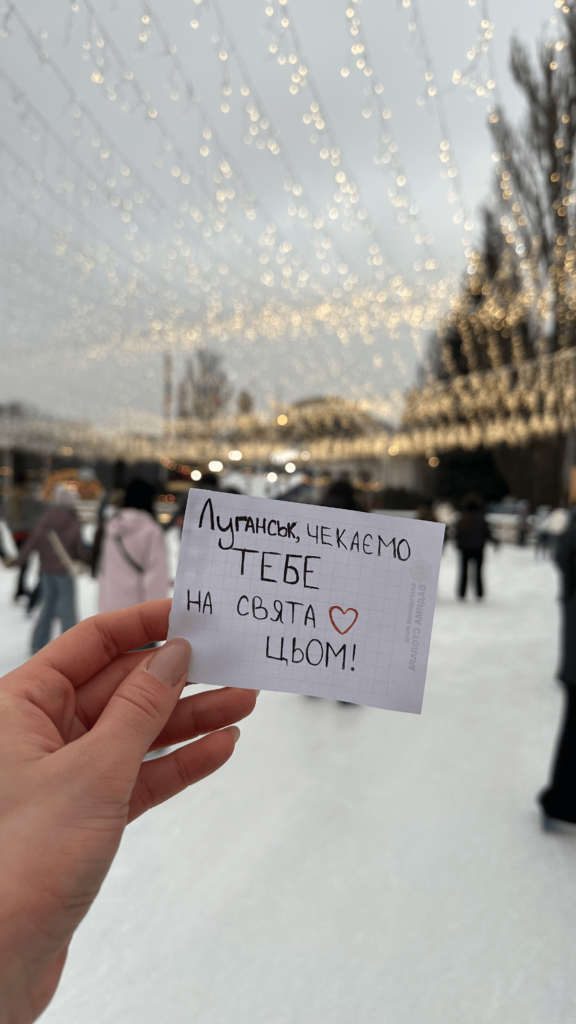 Луганськ, ЧЕКАЄМО
ТЕБЕ
НА СВЯТА
ЦЬОМ!